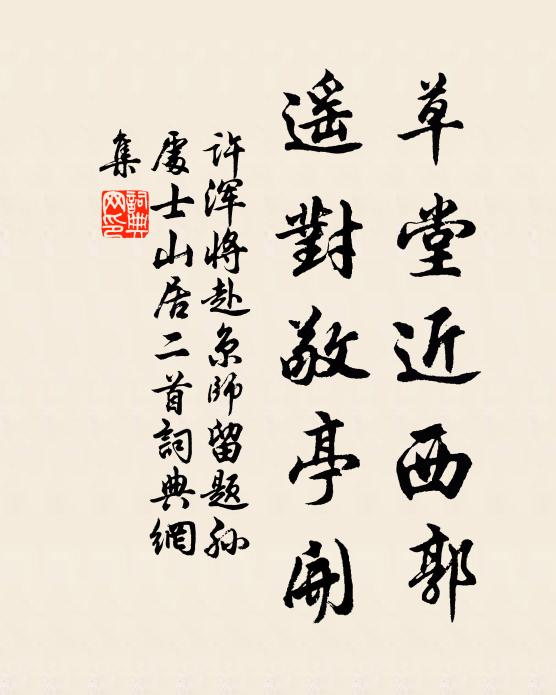 草堂近西郭
遥對敬亭開
许浑將赴京師留題孙
處士山居二首詞典網
集
詞典
网印